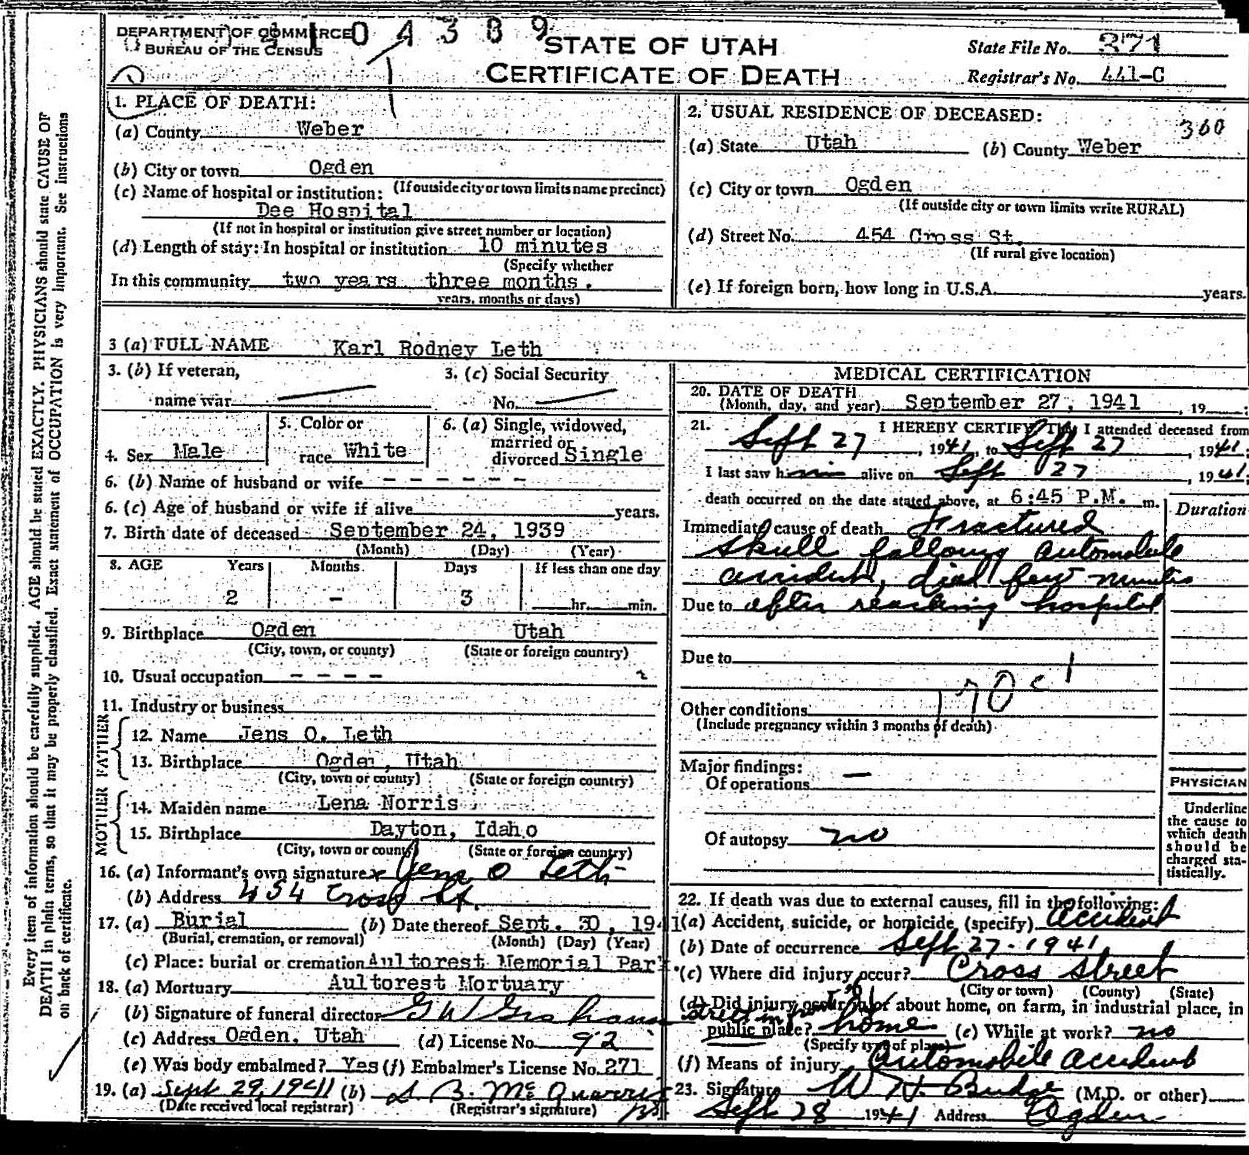 DEPARTMENT OF COMMERCE
BUREAU OF THE CENSUS
04389
STATE OF UTAH
CERTIFICATE OF DEATH
State File No. 371
Registrar's No. 441-C
Every item of information should be carefully supplied. AGE should be stated EXACTLY. PHYSICIANS should state CAUSE OF
DEATH in plain terms, so that it may be properly classified. Exact statement of OCCUPATION is very important. See instructions
on back of certificate.
1. PLACE OF DEATH:
(a) County Weber
(b) City or town Ogden
(If outside city or town limits name precinct)
(c) Name of hospital or institution:
Dee Hospital
(If not in hospital or institution give street number or location)
(d) Length of stay: In hospital or institution 10 minutes
(Specify whether
In this community two years three months.
years, months or days)
2. USUAL RESIDENCE OF DECEASED:
360
(a) State Utah (b) County Weber
(c) City or town Ogden
(If outside city or town limits write RURAL)
(d) Street No. 454 Cross St.
(If rural give location)
(e) If foreign born, how long in U.S.A. years.
3 (a) FULL NAME Karl Rodney Leth
3. (b) If veteran,
name war
3. (c) Social Security
No.
4. Sex Male
5. Color or
race White
6. (a) Single, widowed,
married or
divorced Single
6. (b) Name of husband or wife - - - - - -
6. (c) Age of husband or wife if alive years.
7. Birth date of deceased September 24, 1939
(Month) (Day) (Year)
8. AGE Years Months Days If less than one day
2 - 3 hr. min.
9. Birthplace Ogden Utah
(City, town, or county) (State or foreign country)
10. Usual occupation - - - -
11. Industry or business
FATHER
12. Name Jens O. Leth
13. Birthplace Ogden, Utah
(City, town or county) (State or foreign country)
MOTHER
14. Maiden name Lena Norris
15. Birthplace Dayton, Idaho
(City, town or county) (State or foreign country)
16. (a) Informant's own signature x Jens O Leth
(b) Address 454 Cross St.
17. (a) Burial (b) Date thereof Sept. 30, 1941
(Burial, cremation, or removal) (Month) (Day) (Year)
(c) Place: burial or cremation Aultorest Memorial Park
18. (a) Mortuary Aultorest Mortuary
(b) Signature of funeral director
(c) Address Ogden, Utah (d) License No. 92
(e) Was body embalmed? Yes (f) Embalmer's License No. 271
19. (a) Sept 29, 1941 (b)
(Date received local registrar) (Registrar's signature)
MEDICAL CERTIFICATION
20. DATE OF DEATH
(Month, day, and year) September 27, 1941, 19
21. I HEREBY CERTIFY, That I attended deceased from
Sept 27, 1941, to Sept 27, 1941;
I last saw him alive on Sept 27, 1941;
death occurred on the date stated above, at 6:45 P.M. m.
Duration
Immediate cause of death Fractured
skull following automobile
accident, died few minutes
Due to after reaching hospital
Due to
170c
Other conditions
(Include pregnancy within 3 months of death)
Major findings:
Of operations —
Of autopsy no
PHYSICIAN
Underline
the cause to
which death
should be
charged sta-
tistically.
22. If death was due to external causes, fill in the following:
(a) Accident, suicide, or homicide (specify) Accident
(b) Date of occurrence Sept 27-1941
(c) Where did injury occur? Cross Street
(City or town) (County) (State)
(d) Did injury occur in or about home, on farm, in industrial place, in
Street in front of
public place? home (e) While at work? no
(Specify type of place)
(f) Means of injury Automobile Accident
23. Signature W H Budge (M.D. or other)
Sept 28 1941 Address Ogden